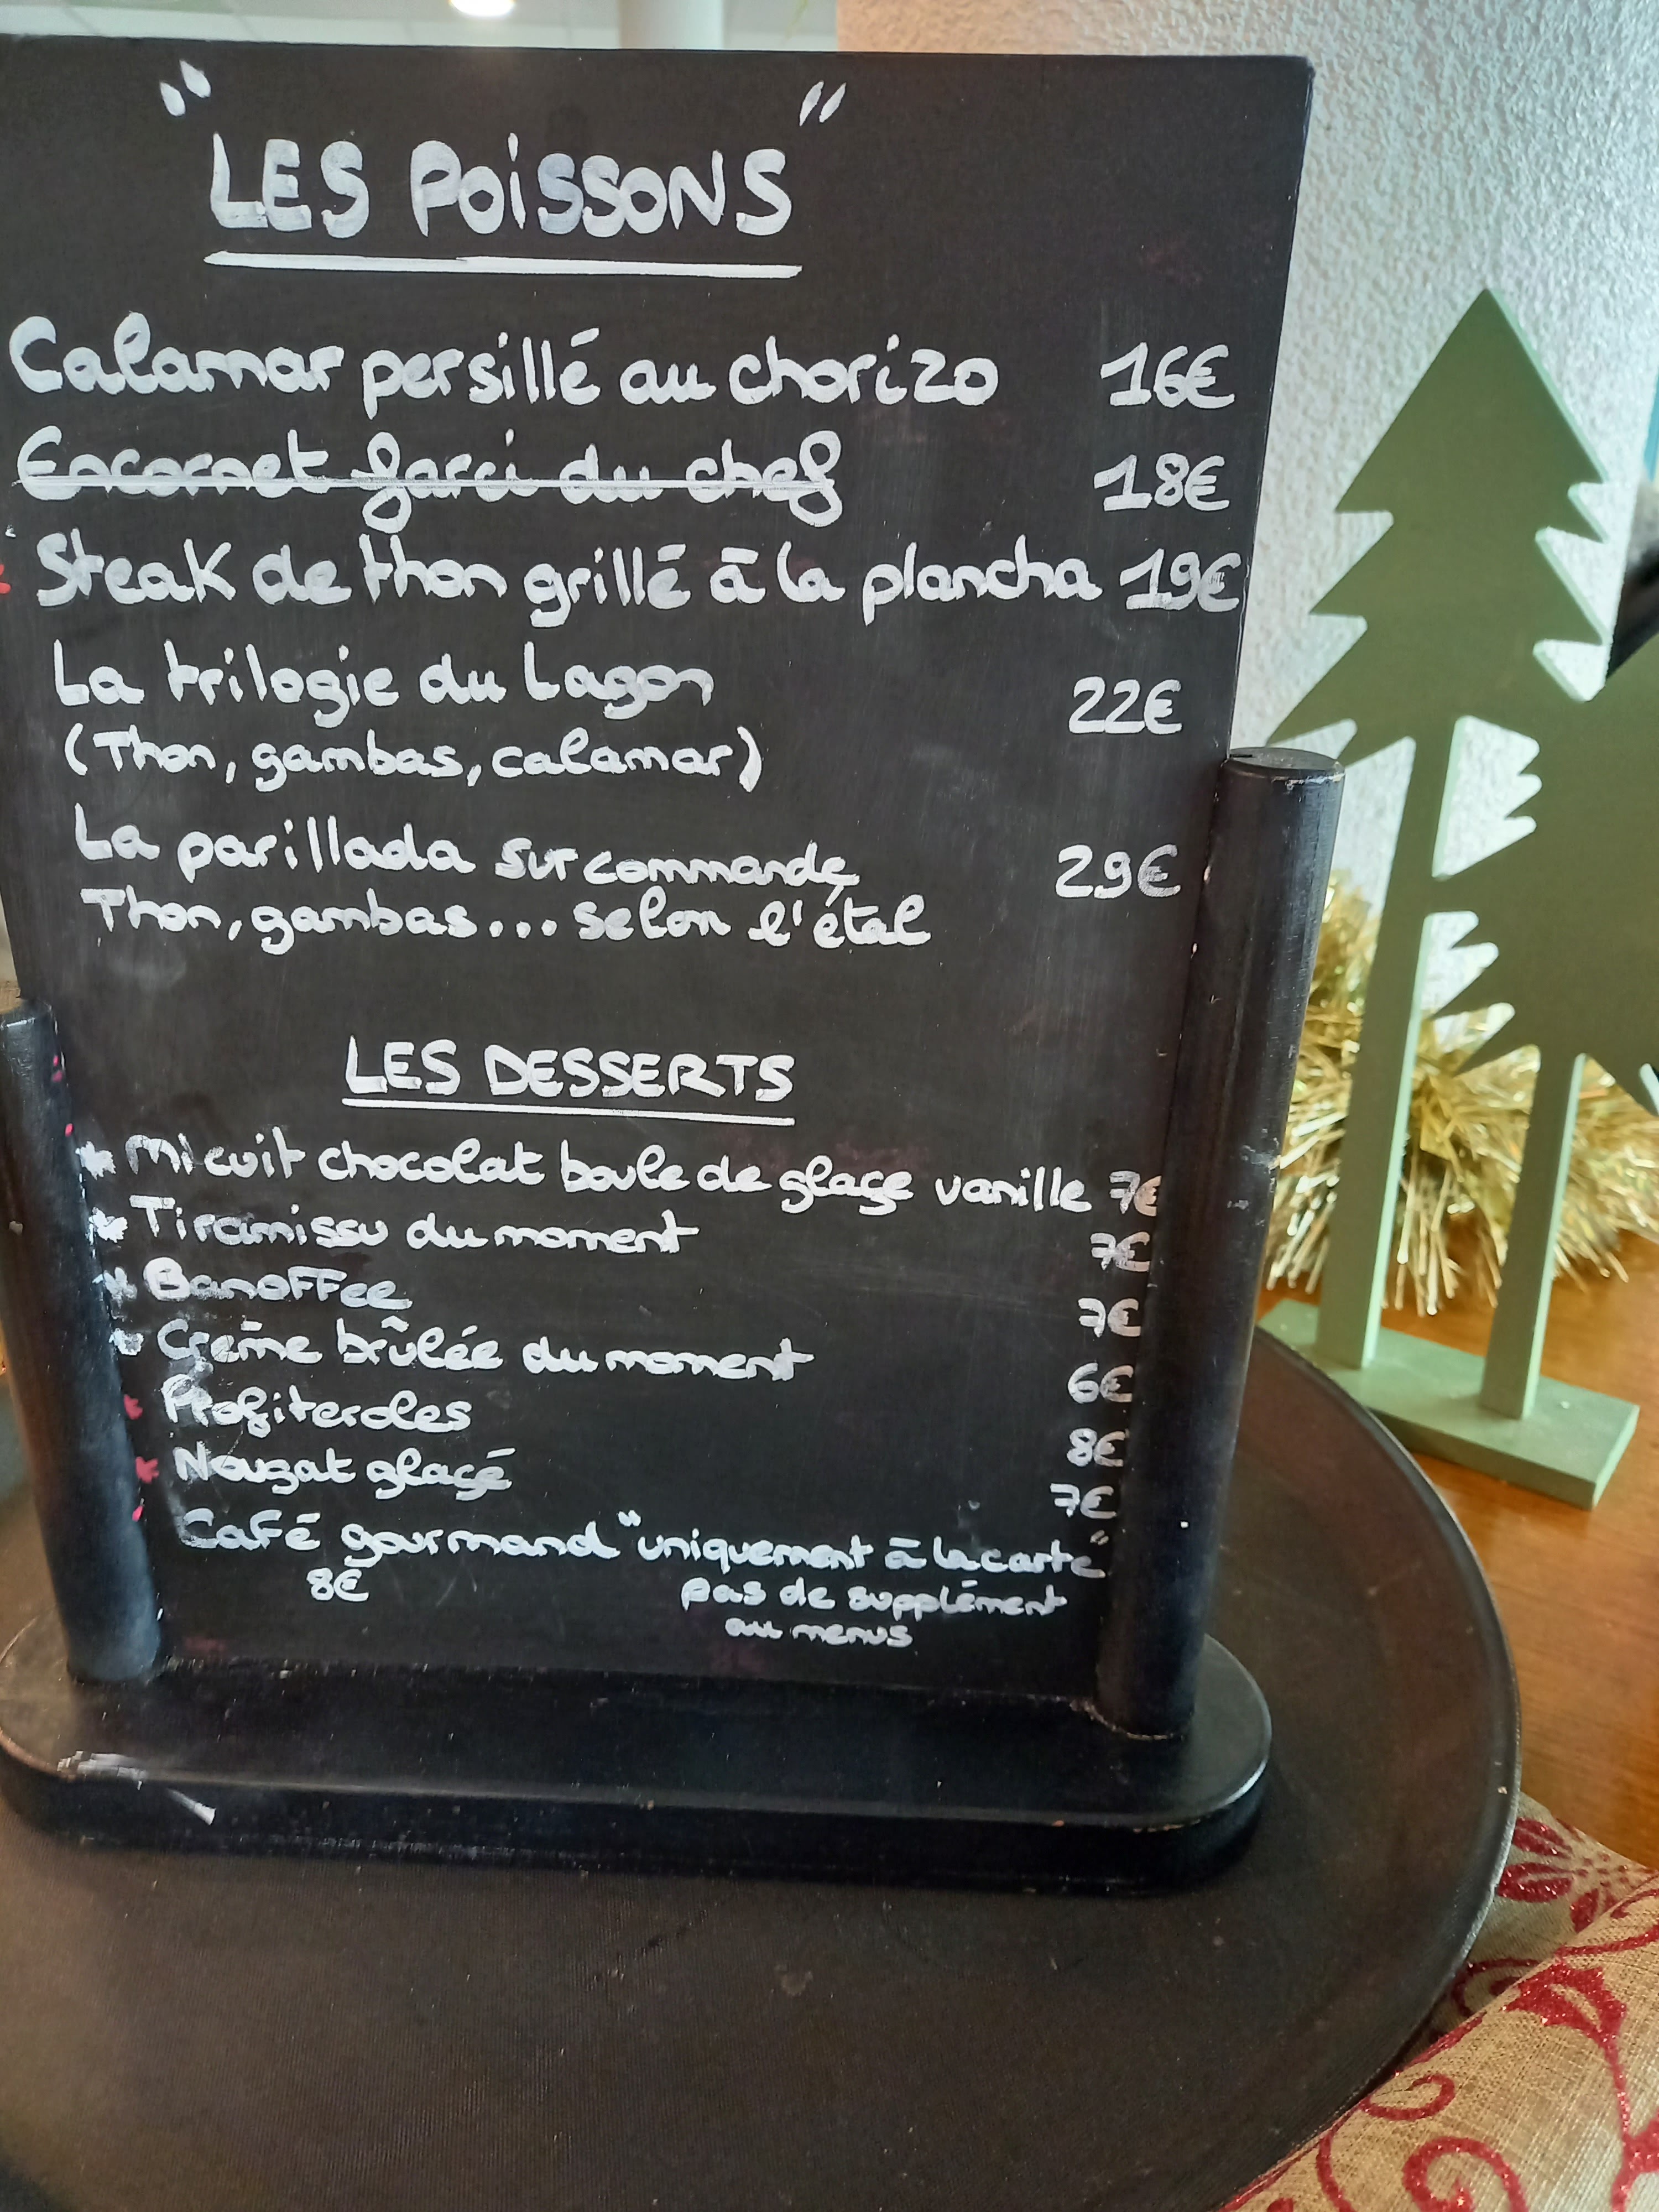 " LES POISSONS "
Calamar persillé au chorizo 16€
Encornet farci du chef 18€
Steak de thon grillé à la plancha 19€
La trilogie du Lagon 22€
(Thon, gambas, calamar)
La parillada sur commande 29€
Thon, gambas... selon l'étal
LES DESSERTS
* Mi cuit chocolat boule de glace vanille 7€
* Tiramissu du moment 7€
* Banoffee 7€
* Crème brûlée du moment 6€
* Profiteroles 8€
* Nougat glacé 7€
Café gourmand "uniquement à la carte"
8€ pas de supplément
au menus